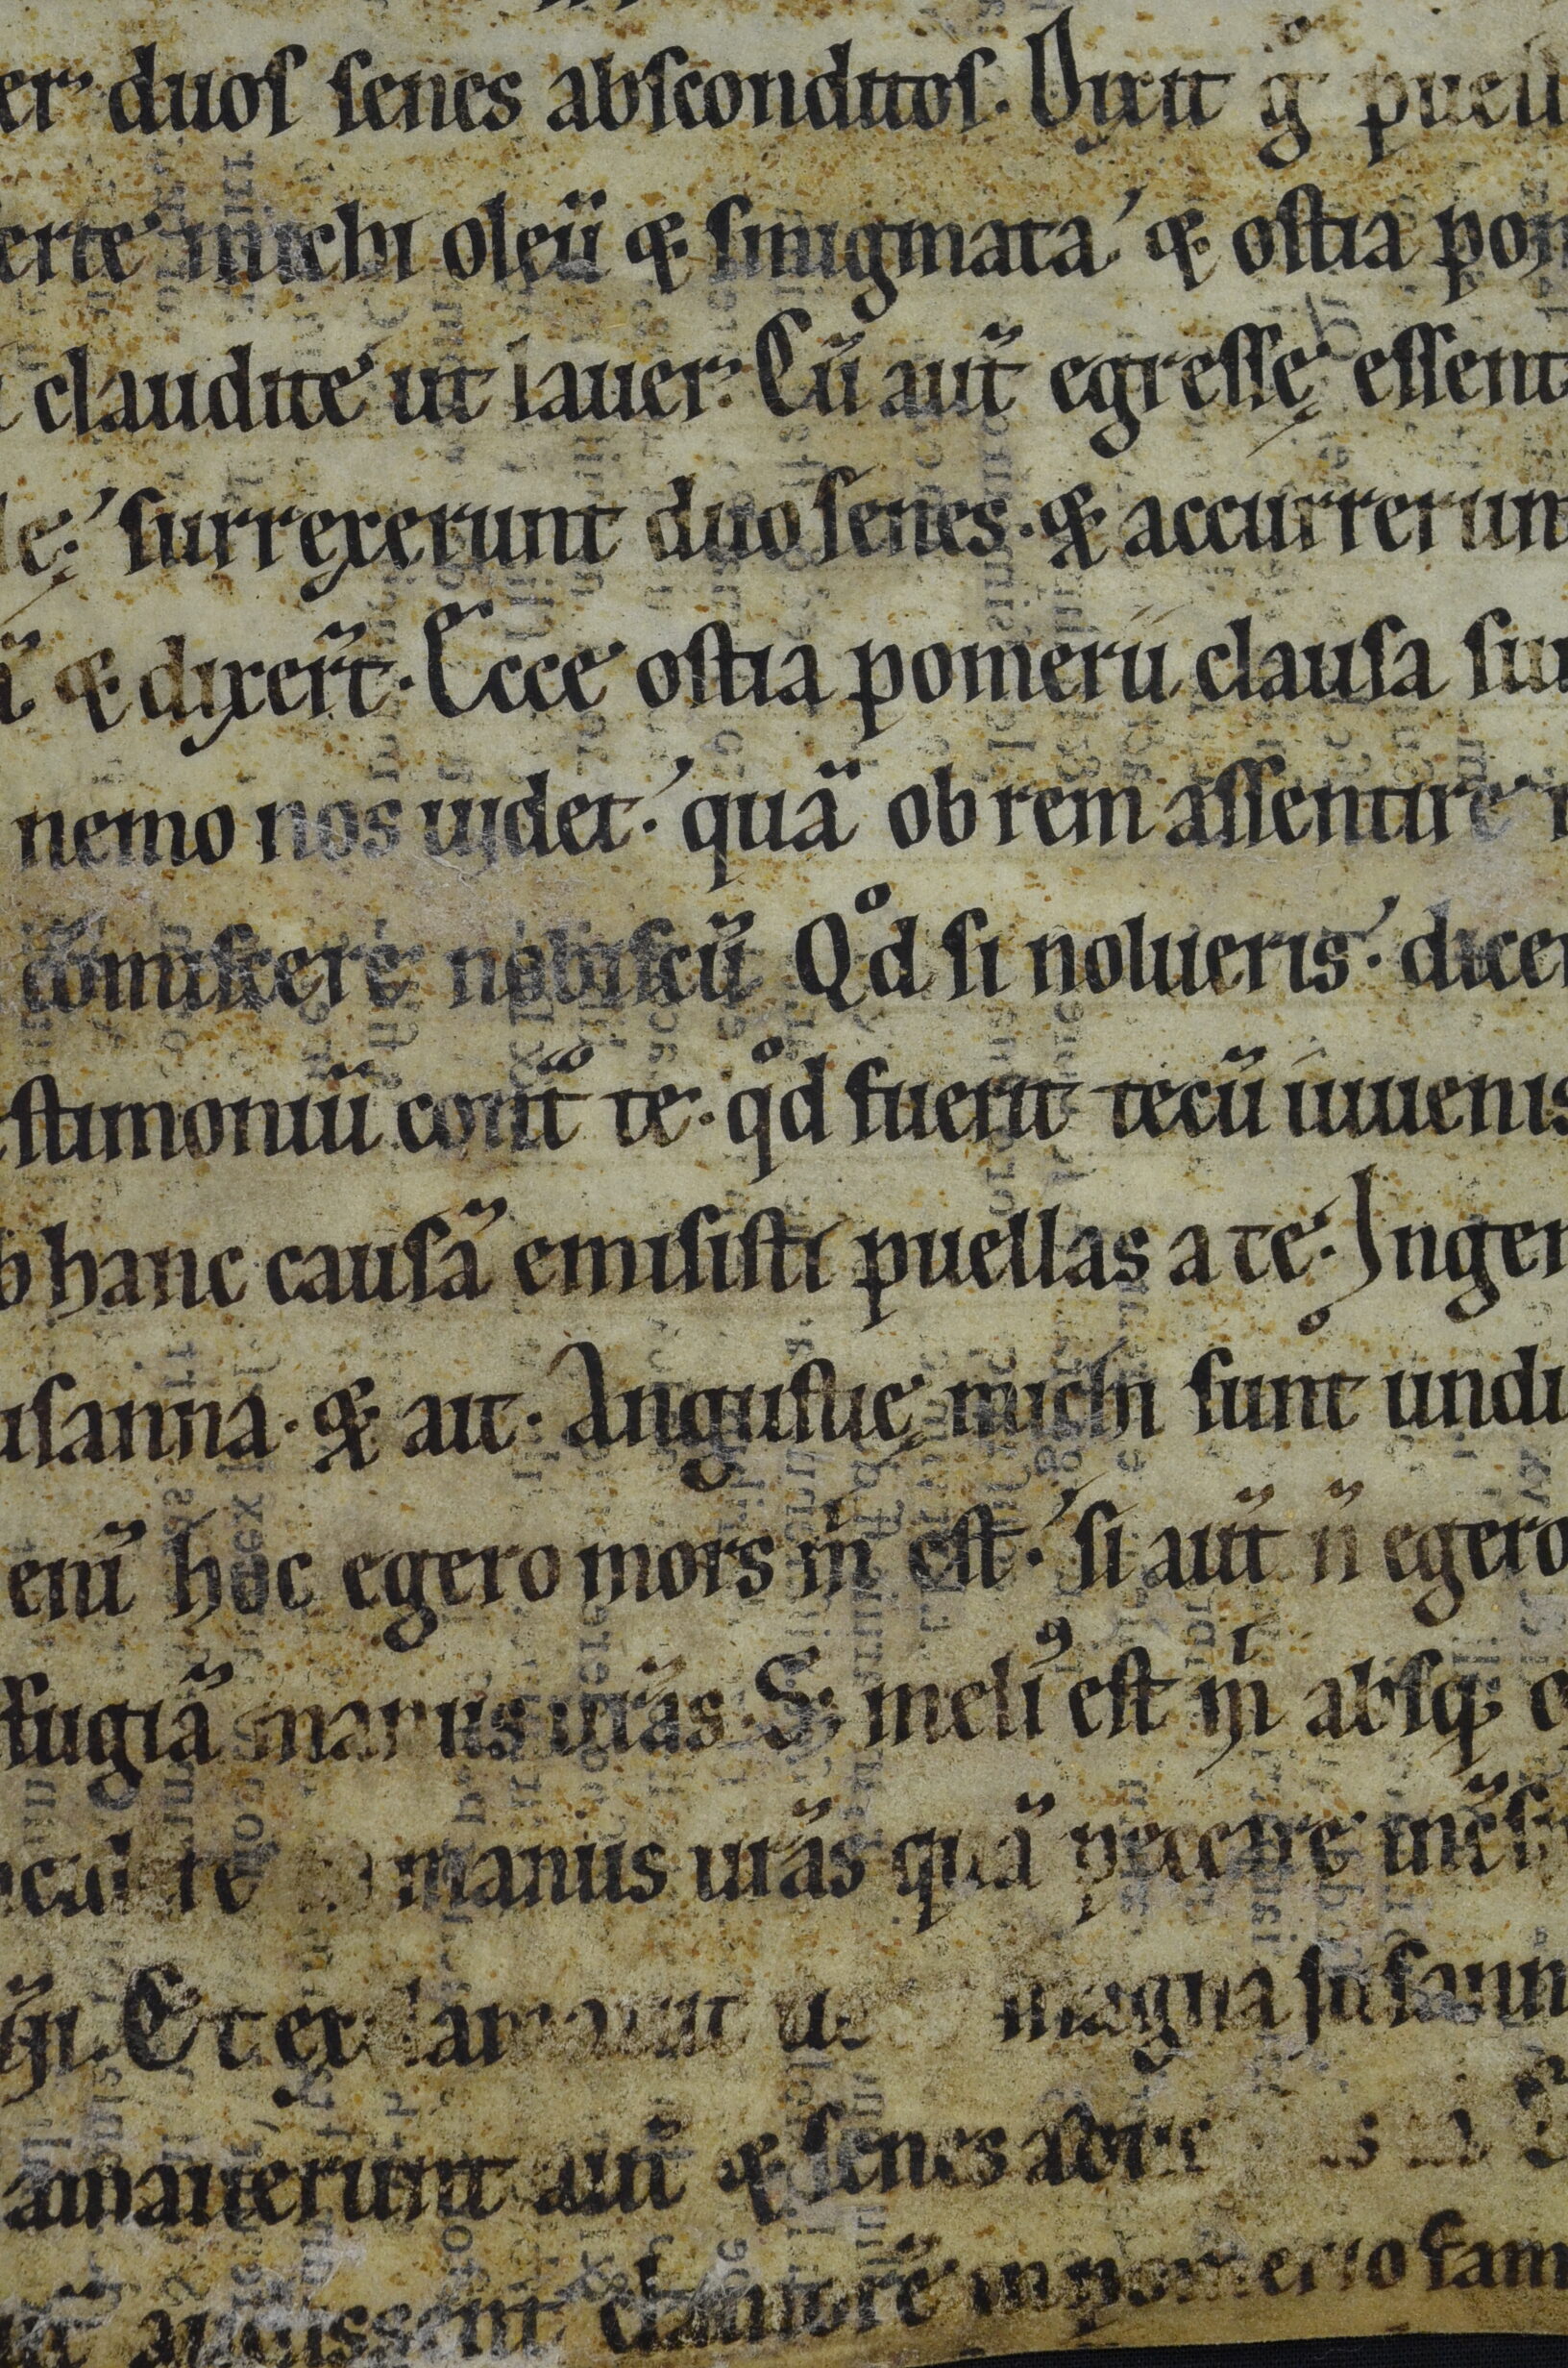 er duos senes absconditos. Dixit g puell
erte michi oleū & smigmata & ostia pom
claudite ut lauer. Cū aut̄ egressę essent
le surrexerunt duo senes. & accurrerun
ā & dixer̄t. Ecce ostia pomerii clausa sun
nemo nos uidet. quā ob rem assentire
cōmiscere nobiscū Qͦd si nolueris. dicem
estimoniū cont̄ te. qͦd fuerit tecū iuuenis
b hanc causā emisisti puellas a te. Ingem
usanna. & ait. Angustię michi sunt undi
enī hoc egero mors m̄ est. si aut̄ n̄ egero
ffugiā manus ur̄as. S; meli᾽ est m̄ absq; o
manus ur̄as quā peccare
Et exclamauit magna susann
amauerunt aut̄ & senes
audissent clamorē in pomerio fam